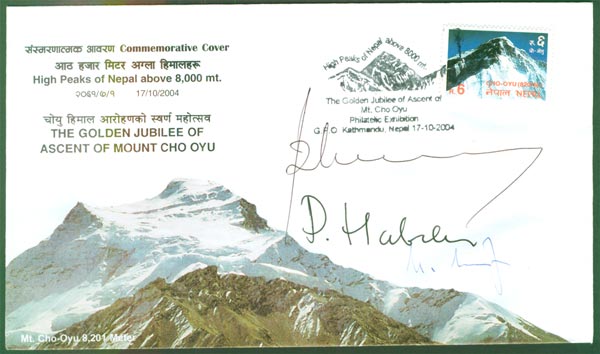 संस्मरणात्मक आवरण Commemorative Cover
आठ हजार मिटर अग्ला हिमालहरू
High Peaks of Nepal above 8,000 mt.
२०६१/७/१ 17/10/2004
चोयु हिमाल आरोहणको स्वर्ण महोत्सव
THE GOLDEN JUBILEE OF
ASCENT OF MOUNT CHO OYU
High Peaks of Nepal above 8,000 mt.
The Golden Jubilee of Ascent of
Mt. Cho Oyu
Philatelic Exhibition
G.P.O. Kathmandu, Nepal 17-10-2004
रु. ६
CHO-OYU
रु. 6 नेपाल NEPAL
P. Habeler
Mt. Cho-Oyu 8,201 Meter